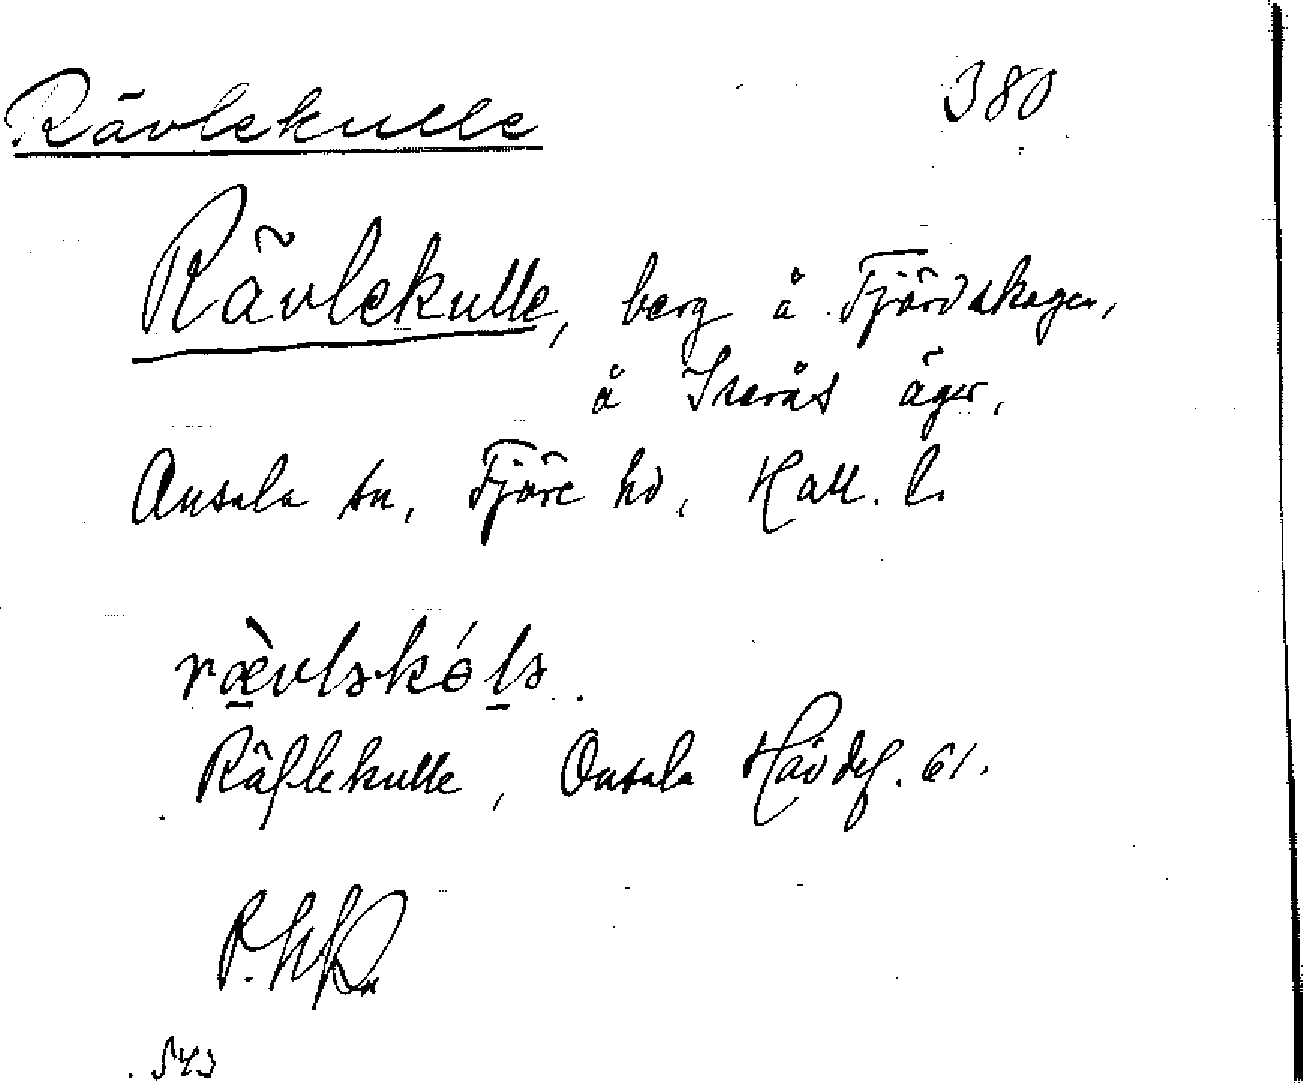 Rävlekulle 380
Rävlekulle, berg å Fjärdskogen,
å Iserås ägor.
Onsala sn, Fjäre hd, Hall. l.
rævləkólə.
Räflekulle, Onsala Hävdef. 61.
543